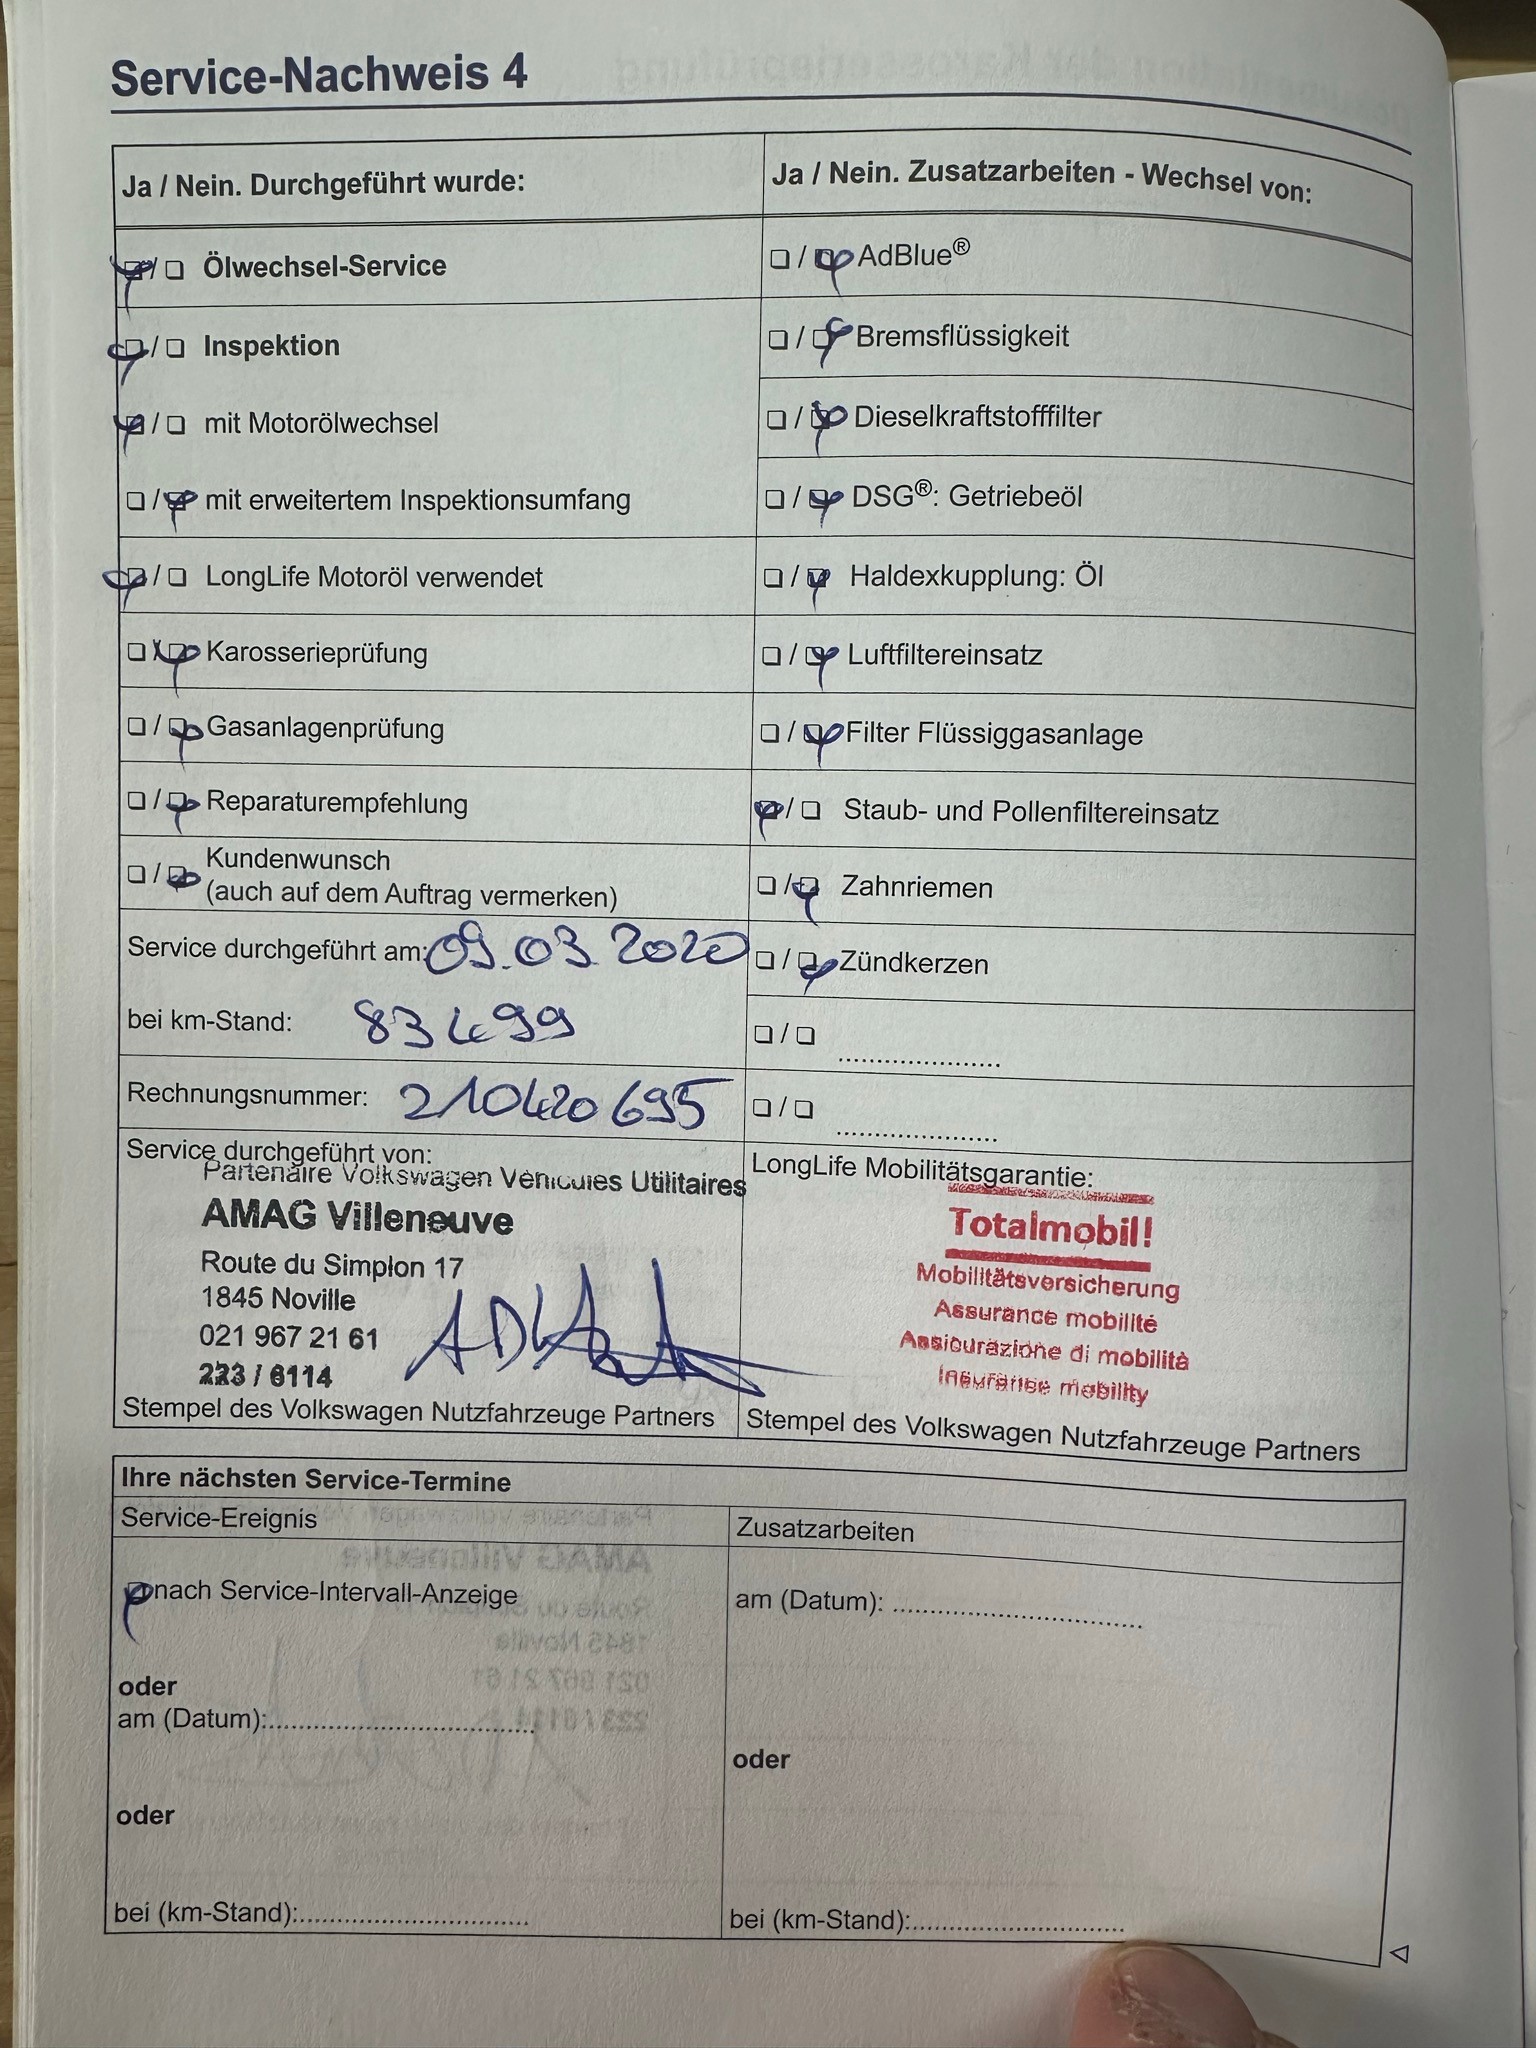 Service-Nachweis 4
Ja / Nein. Durchgeführt wurde:
☑/☐ Ölwechsel-Service
☑/☐ Inspektion
☑/☐ mit Motorölwechsel
☐/☑ mit erweitertem Inspektionsumfang
☑/☐ LongLife Motoröl verwendet
☐/☑ Karosserieprüfung
☐/☑ Gasanlagenprüfung
☐/☑ Reparaturempfehlung
☐/☑ Kundenwunsch
(auch auf dem Auftrag vermerken)
Service durchgeführt am: 09.03.2020
bei km-Stand: 83499
Rechnungsnummer: 210420695
Service durchgeführt von:
Partenaire Volkswagen Véhicules Utilitaires
AMAG Villeneuve
Route du Simplon 17
1845 Noville
021 967 21 61
223 / 6114
Stempel des Volkswagen Nutzfahrzeuge Partners
Ja / Nein. Zusatzarbeiten - Wechsel von:
☐/☑ AdBlue®
☐/☑ Bremsflüssigkeit
☐/☑ Dieselkraftstofffilter
☐/☑ DSG®: Getriebeöl
☐/☑ Haldexkupplung: Öl
☐/☑ Luftfiltereinsatz
☐/☑ Filter Flüssiggasanlage
☑/☐ Staub- und Pollenfiltereinsatz
☐/☑ Zahnriemen
☐/☑ Zündkerzen
☐/☐ ......................
☐/☐ ......................
LongLife Mobilitätsgarantie:
Totalmobil!
Mobilitätsversicherung
Assurance mobilité
Assicurazione di mobilità
Insurance mobility
Stempel des Volkswagen Nutzfahrzeuge Partners
Ihre nächsten Service-Termine
Service-Ereignis
☑ nach Service-Intervall-Anzeige
oder
am (Datum):....................................
oder
bei (km-Stand):...............................
Zusatzarbeiten
am (Datum): ..................................
oder
bei (km-Stand):.............................